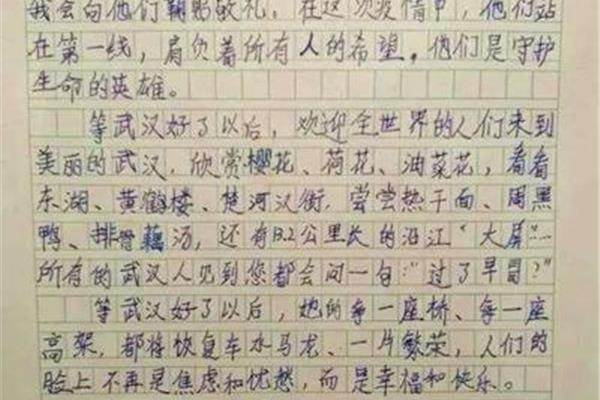 我会向他们鞠躬敬礼。在这次疫情中,他们站
在第一线,肩负着所有人的希望。他们是守护
生命的英雄。
等武汉好了以后,欢迎全世界的人们来到
美丽的武汉,欣赏樱花、荷花、油菜花,看看
东湖、黄鹤楼、楚河汉街,尝尝热干面、周黑
鸭、排骨藕汤,还有13.2公里长的沿江“大屏”……
所有的武汉人见到您都会问一句:“过了早冒?”
等武汉好了以后,她的每一座桥、每一座
高架,都将恢复车水马龙、一片繁荣,人们的
脸上不再是焦虑和忧愁,而是幸福和快乐。